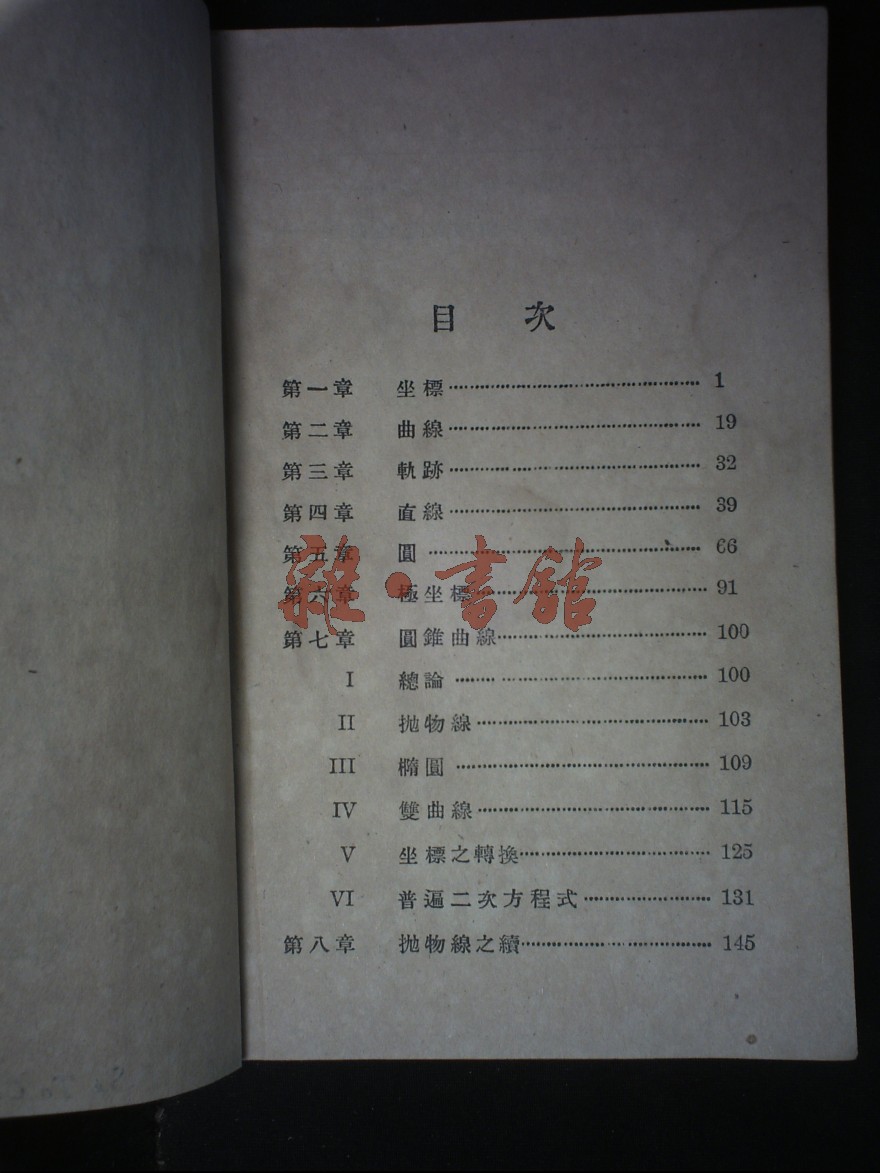 目 次
第一章 坐標 1
第二章 曲線 19
第三章 軌跡 32
第四章 直線 39
第五章 圓 66
第六章 極坐標 91
第七章 圓錐曲線 100
I 總論 100
II 拋物線 103
III 橢圓 109
IV 雙曲線 115
V 坐標之轉換 125
VI 普遍二次方程式 131
第八章 拋物線之續 145
雜·書館